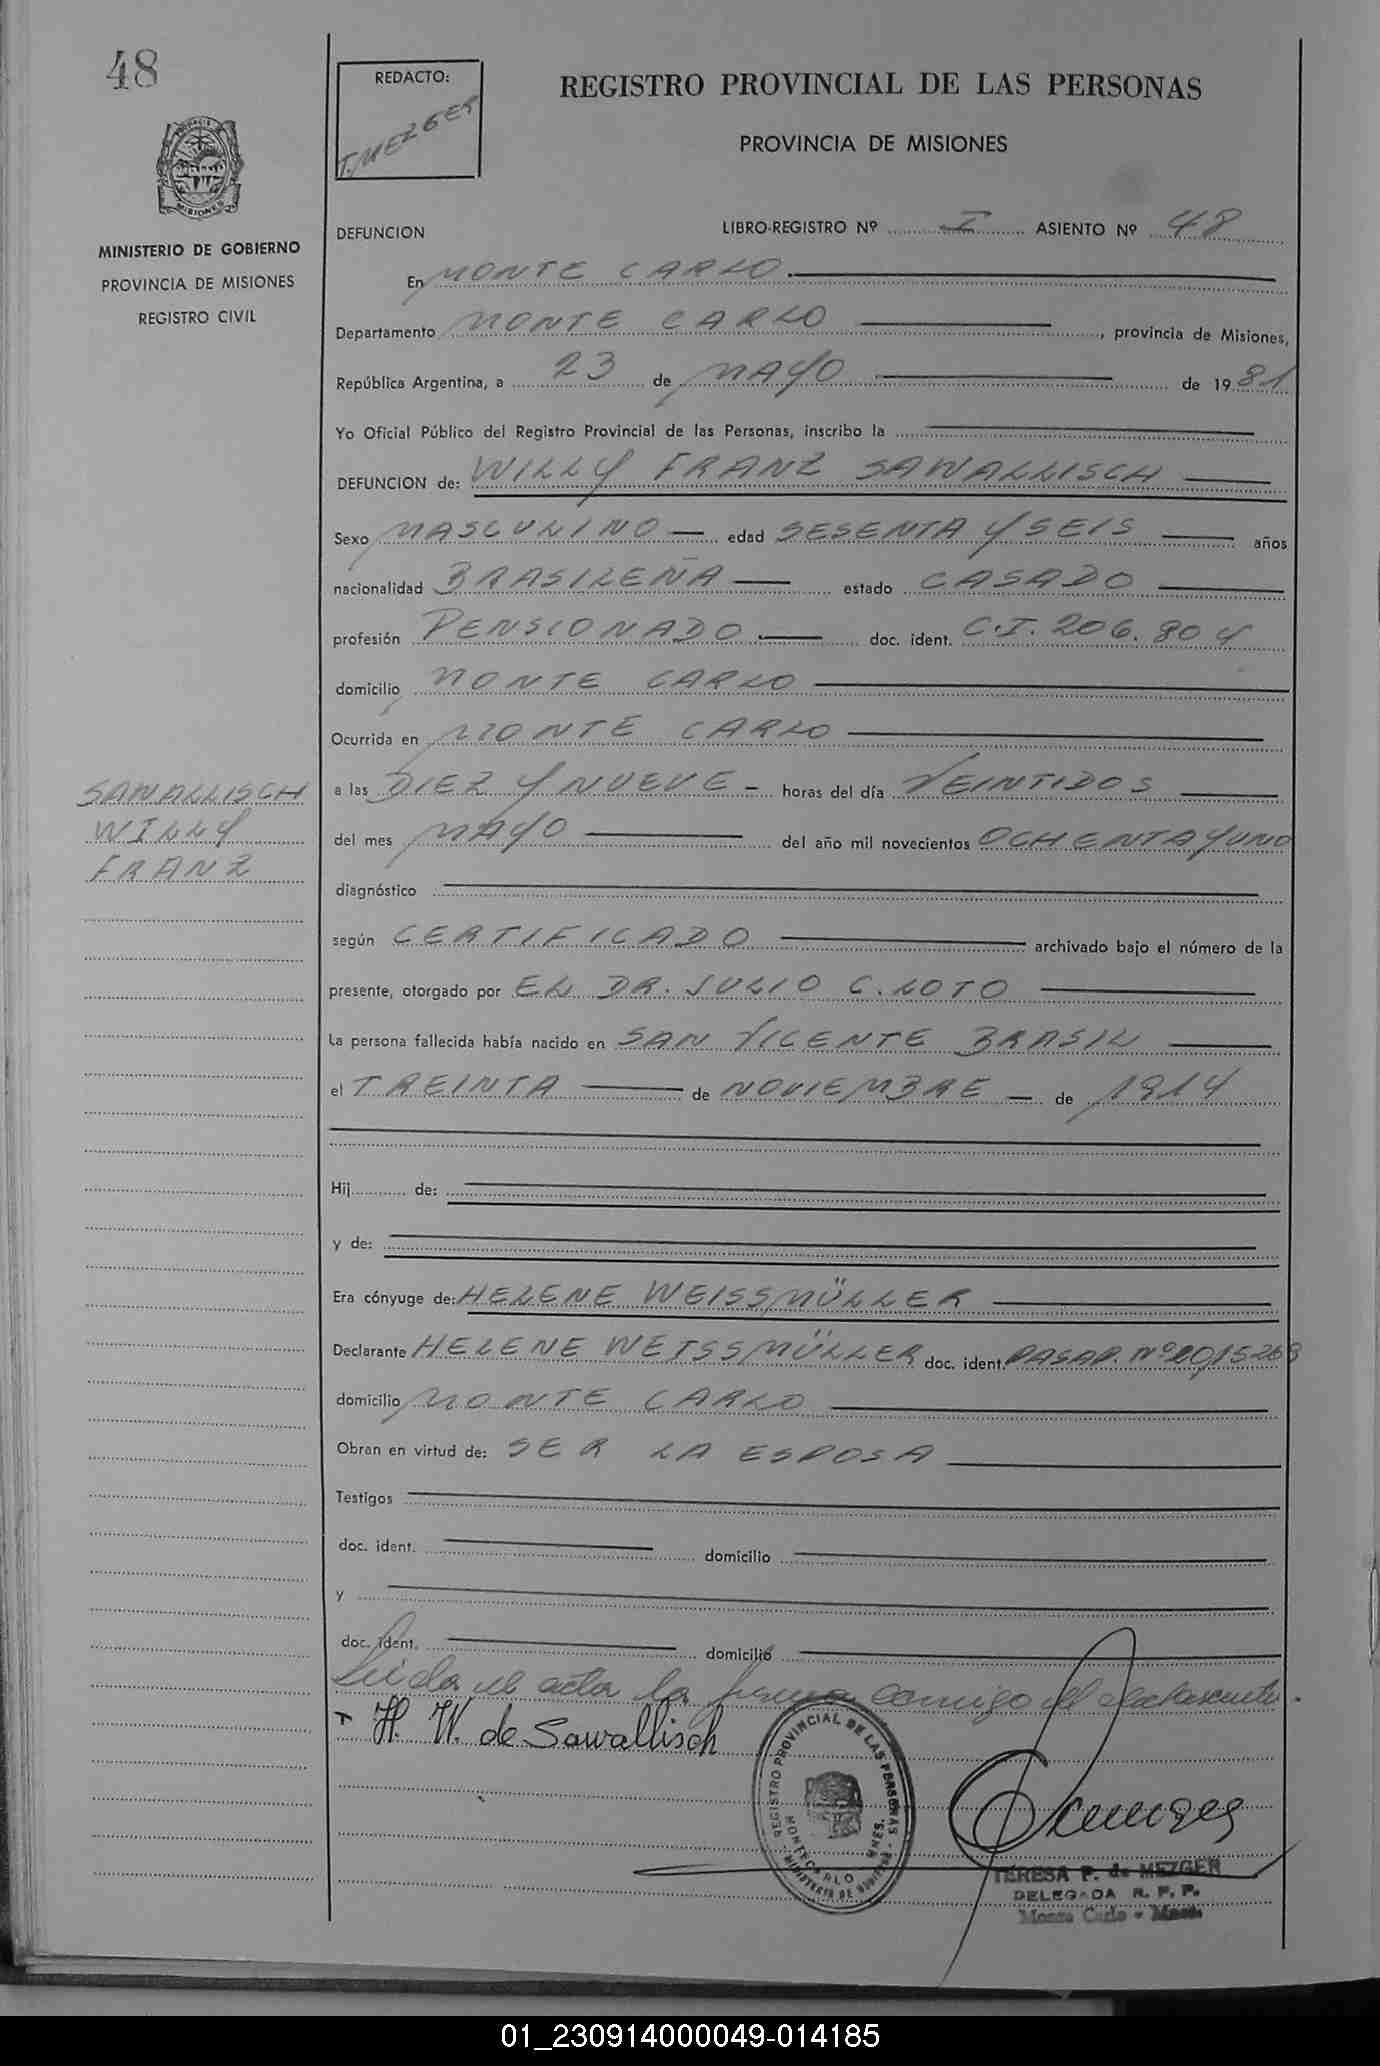 48
REDACTO:
T. MEZGER
REGISTRO PROVINCIAL DE LAS PERSONAS
PROVINCIA DE MISIONES
MISIONES
MINISTERIO DE GOBIERNO
PROVINCIA DE MISIONES
REGISTRO CIVIL
DEFUNCION LIBRO-REGISTRO Nº I ASIENTO Nº 48
En MONTE CARLO
Departamento MONTE CARLO, provincia de Misiones,
República Argentina, a 23 de MAYO de 1981
Yo Oficial Público del Registro Provincial de las Personas, inscribo la
DEFUNCION de: WILLY FRANZ SAWALLISCH
Sexo MASCULINO edad SESENTA Y SEIS años
nacionalidad BRASILEÑA estado CASADO
profesión PENSIONADO doc. ident. C.I. 206.804
domicilio MONTE CARLO
Ocurrida en MONTE CARLO
SAWALLISCH
WILLY
FRANZ
a las DIEZ Y NUEVE - horas del día VEINTIDOS
del mes MAYO del año mil novecientos OCHENTA Y UNO
diagnóstico
según CERTIFICADO archivado bajo el número de la
presente, otorgado por EL DR. JULIO C. LOTO
La persona fallecida había nacido en SAN VICENTE BRASIL
el TREINTA de NOVIEMBRE de 1914
Hij de:
y de:
Era cónyuge de: HELENE WEISSMÜLLER
Declarante HELENE WEISSMÜLLER doc. ident. PASAP. Nº
domicilio MONTE CARLO
Obran en virtud de: SER LA ESPOSA
Testigos
doc. ident. domicilio
y
doc. ident. domicilio
Leida el acta la firma conmigo el declarante.
H. W. de Sawallisch
REGISTRO PROVINCIAL DE LAS PERSONAS
MONTECARLO
MINISTERIO DE GOBIERNO
TERESA P. de MEZGER
DELEGADA R. P. P.
Monte Carlo - Mnes.
01_230914000049-014185